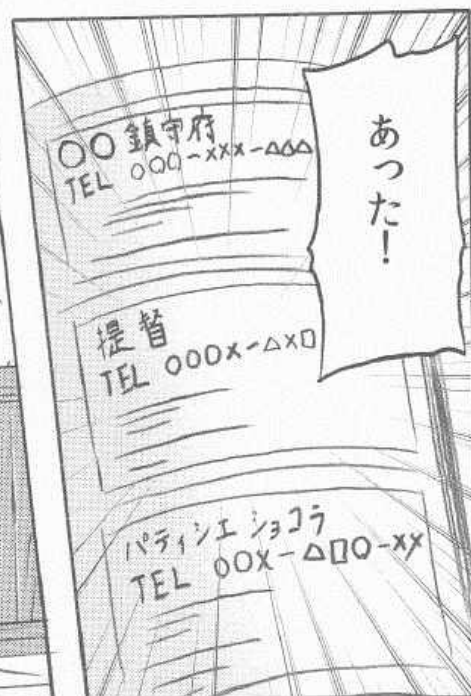 あった!
○○鎮守府
TEL ○○○-×××-△△△
提督
TEL ○○○×-△×□
パティシエ ショコラ
TEL ○○×-△□○-××